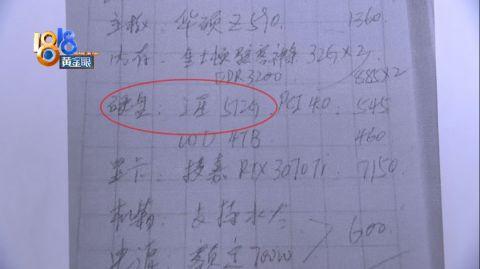 1818
黄金眼
主板：华硕Z590. 1360.
内存：金士顿 骇客神条 32G×2
DDR3200 885×2
硬盘：三星 512G PCI 4.0. 545
WD 4TB 460
显卡：技嘉 RTX3070Ti. 7150.
机箱：支持水冷
600.
电源：额定700W